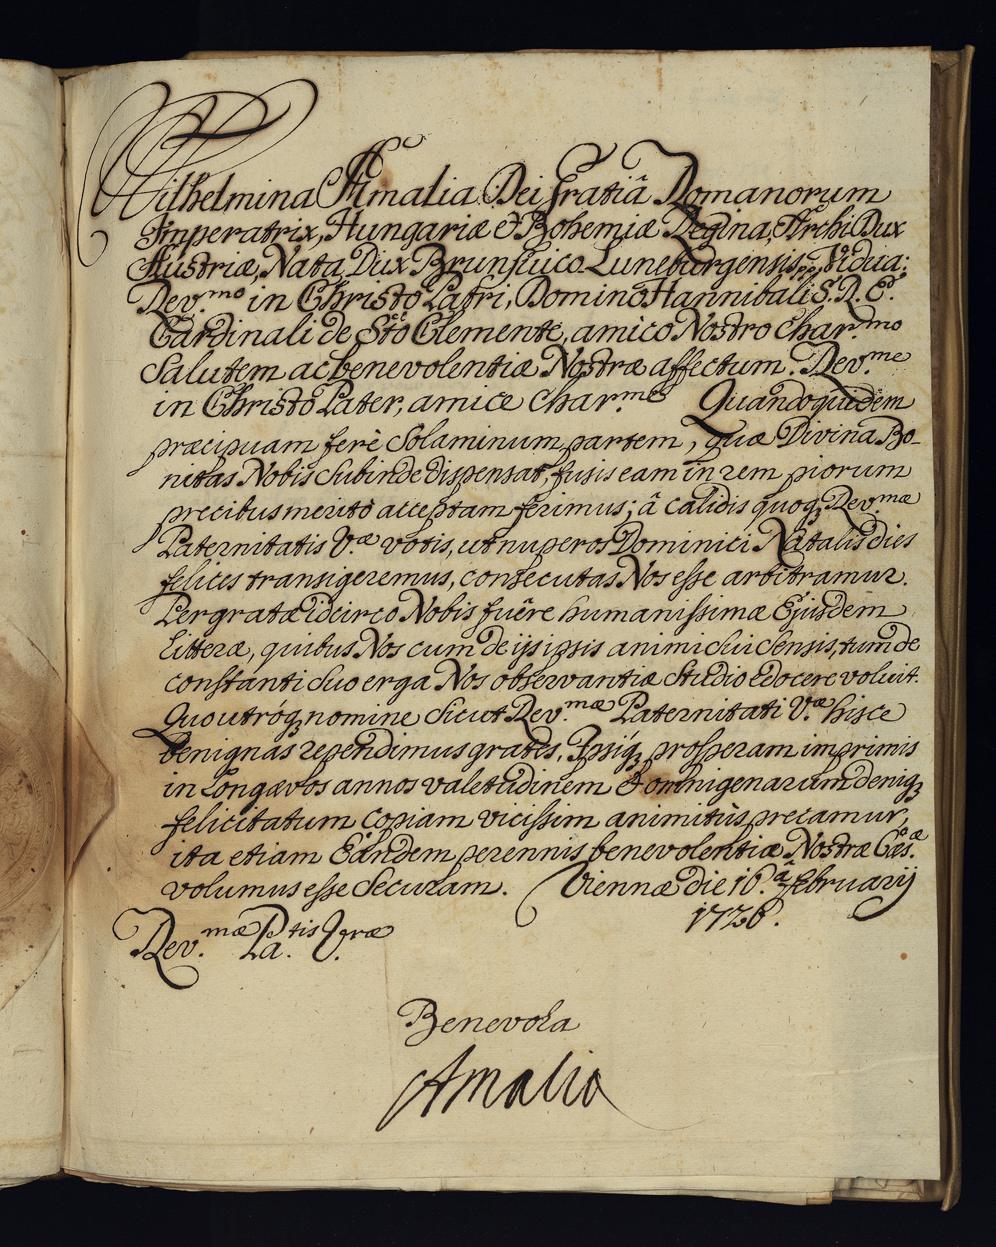 Wilhelmina Amalia Dei Gratiâ Romanorum
Imperatrix, Hungariæ & Bohemiæ Regina, Archi Dux
Austriæ, Nata Dux Brunsuico Luneburgensis, Vidua;
Rev.mo in Christo Patri, Domino Hannibali S. R. E.
Cardinali de Sto Clemente, amico Nostro char.mo
Salutem ac benevolentiæ Nostræ affectum. Rev.me
in Christo Pater, amice char.me Quandoquidem
præcipuam ferè solaminum partem, quæ Divina Bo-
nitas Nobis subinde dispensat, fusis eam in rem piorum
precibus meritò acceptam ferimus; â calidis quoq; Rev.mæ
Paternitatis V.æ votis, ut nuperos Dominici Natalis dies
felices transigeremus, consecutas Nos esse arbitramur.
Pergratæ idcirco Nobis fuêre humanissimæ Ejusdem
litteræ, quibus Nos cum de ijs ipsis animi sui sensis, tum de
constanti suo erga Nos observantiæ studio edocere voluit.
Quo utróq; nomine sicut Rev.mæ Paternitati V.æ hisce
benignas rependimus grates, Ipsiq; prosperam imprimis
in longævos annos valetudinem & omnigenarum deniq;
felicitatum copiam vicissim animitùs precamur,
ita etiam Eandem perennis benevolentiæ Nostræ Cæs.æ
volumus esse securam. Viennæ die 16.â February
1726.
Rev.mæ Pa.tis V.ræ
Benevola
Amalia